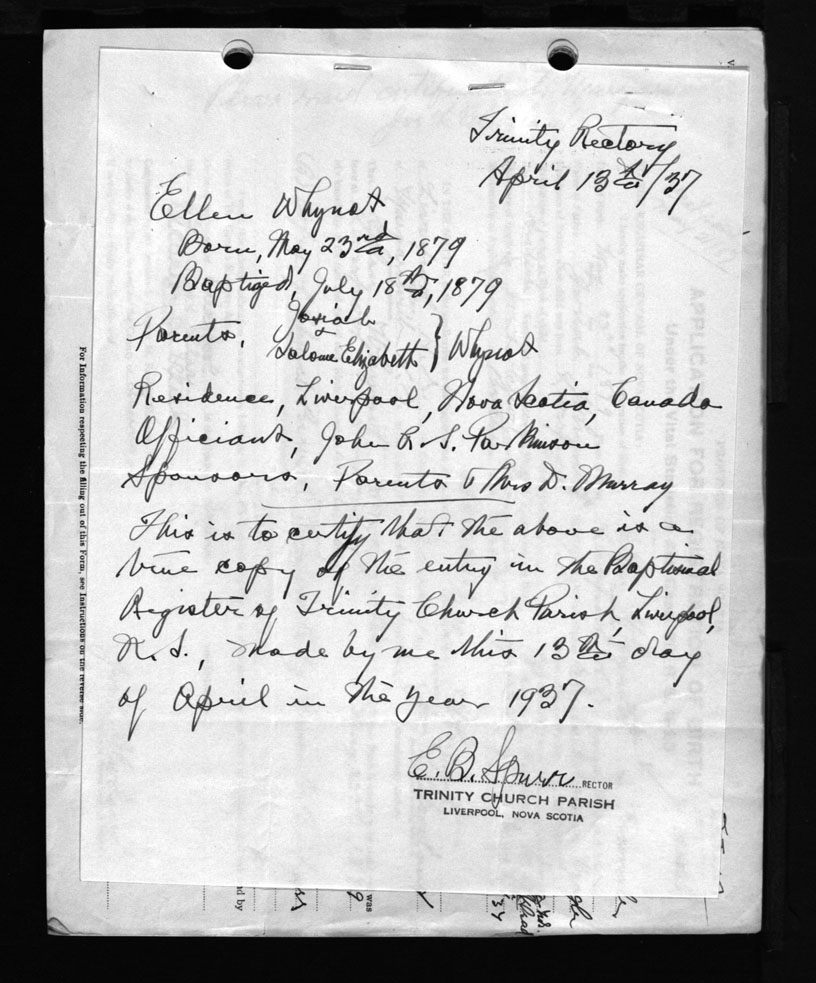 Trinity Rectory
April 13th/37
Ellen Whynot,
Born, May 23rd, 1879
Baptized, July 18th, 1879
Parents, Josiah & Salome Elizabeth } Whynot
Residence, Liverpool, Nova Scotia, Canada
Officiant, John R. S. Parkinson
Sponsors, Parents & Mrs D. Murray
This is to certify that the above is a
true copy of the entry in the Baptismal
Register of Trinity Church Parish, Liverpool,
N. S., made by me this 13th day
of April in the year 1937.
E. B. Spurr RECTOR
TRINITY CHURCH PARISH
LIVERPOOL, NOVA SCOTIA
For Information respecting the filling out of this Form, see Instructions on the reverse side.